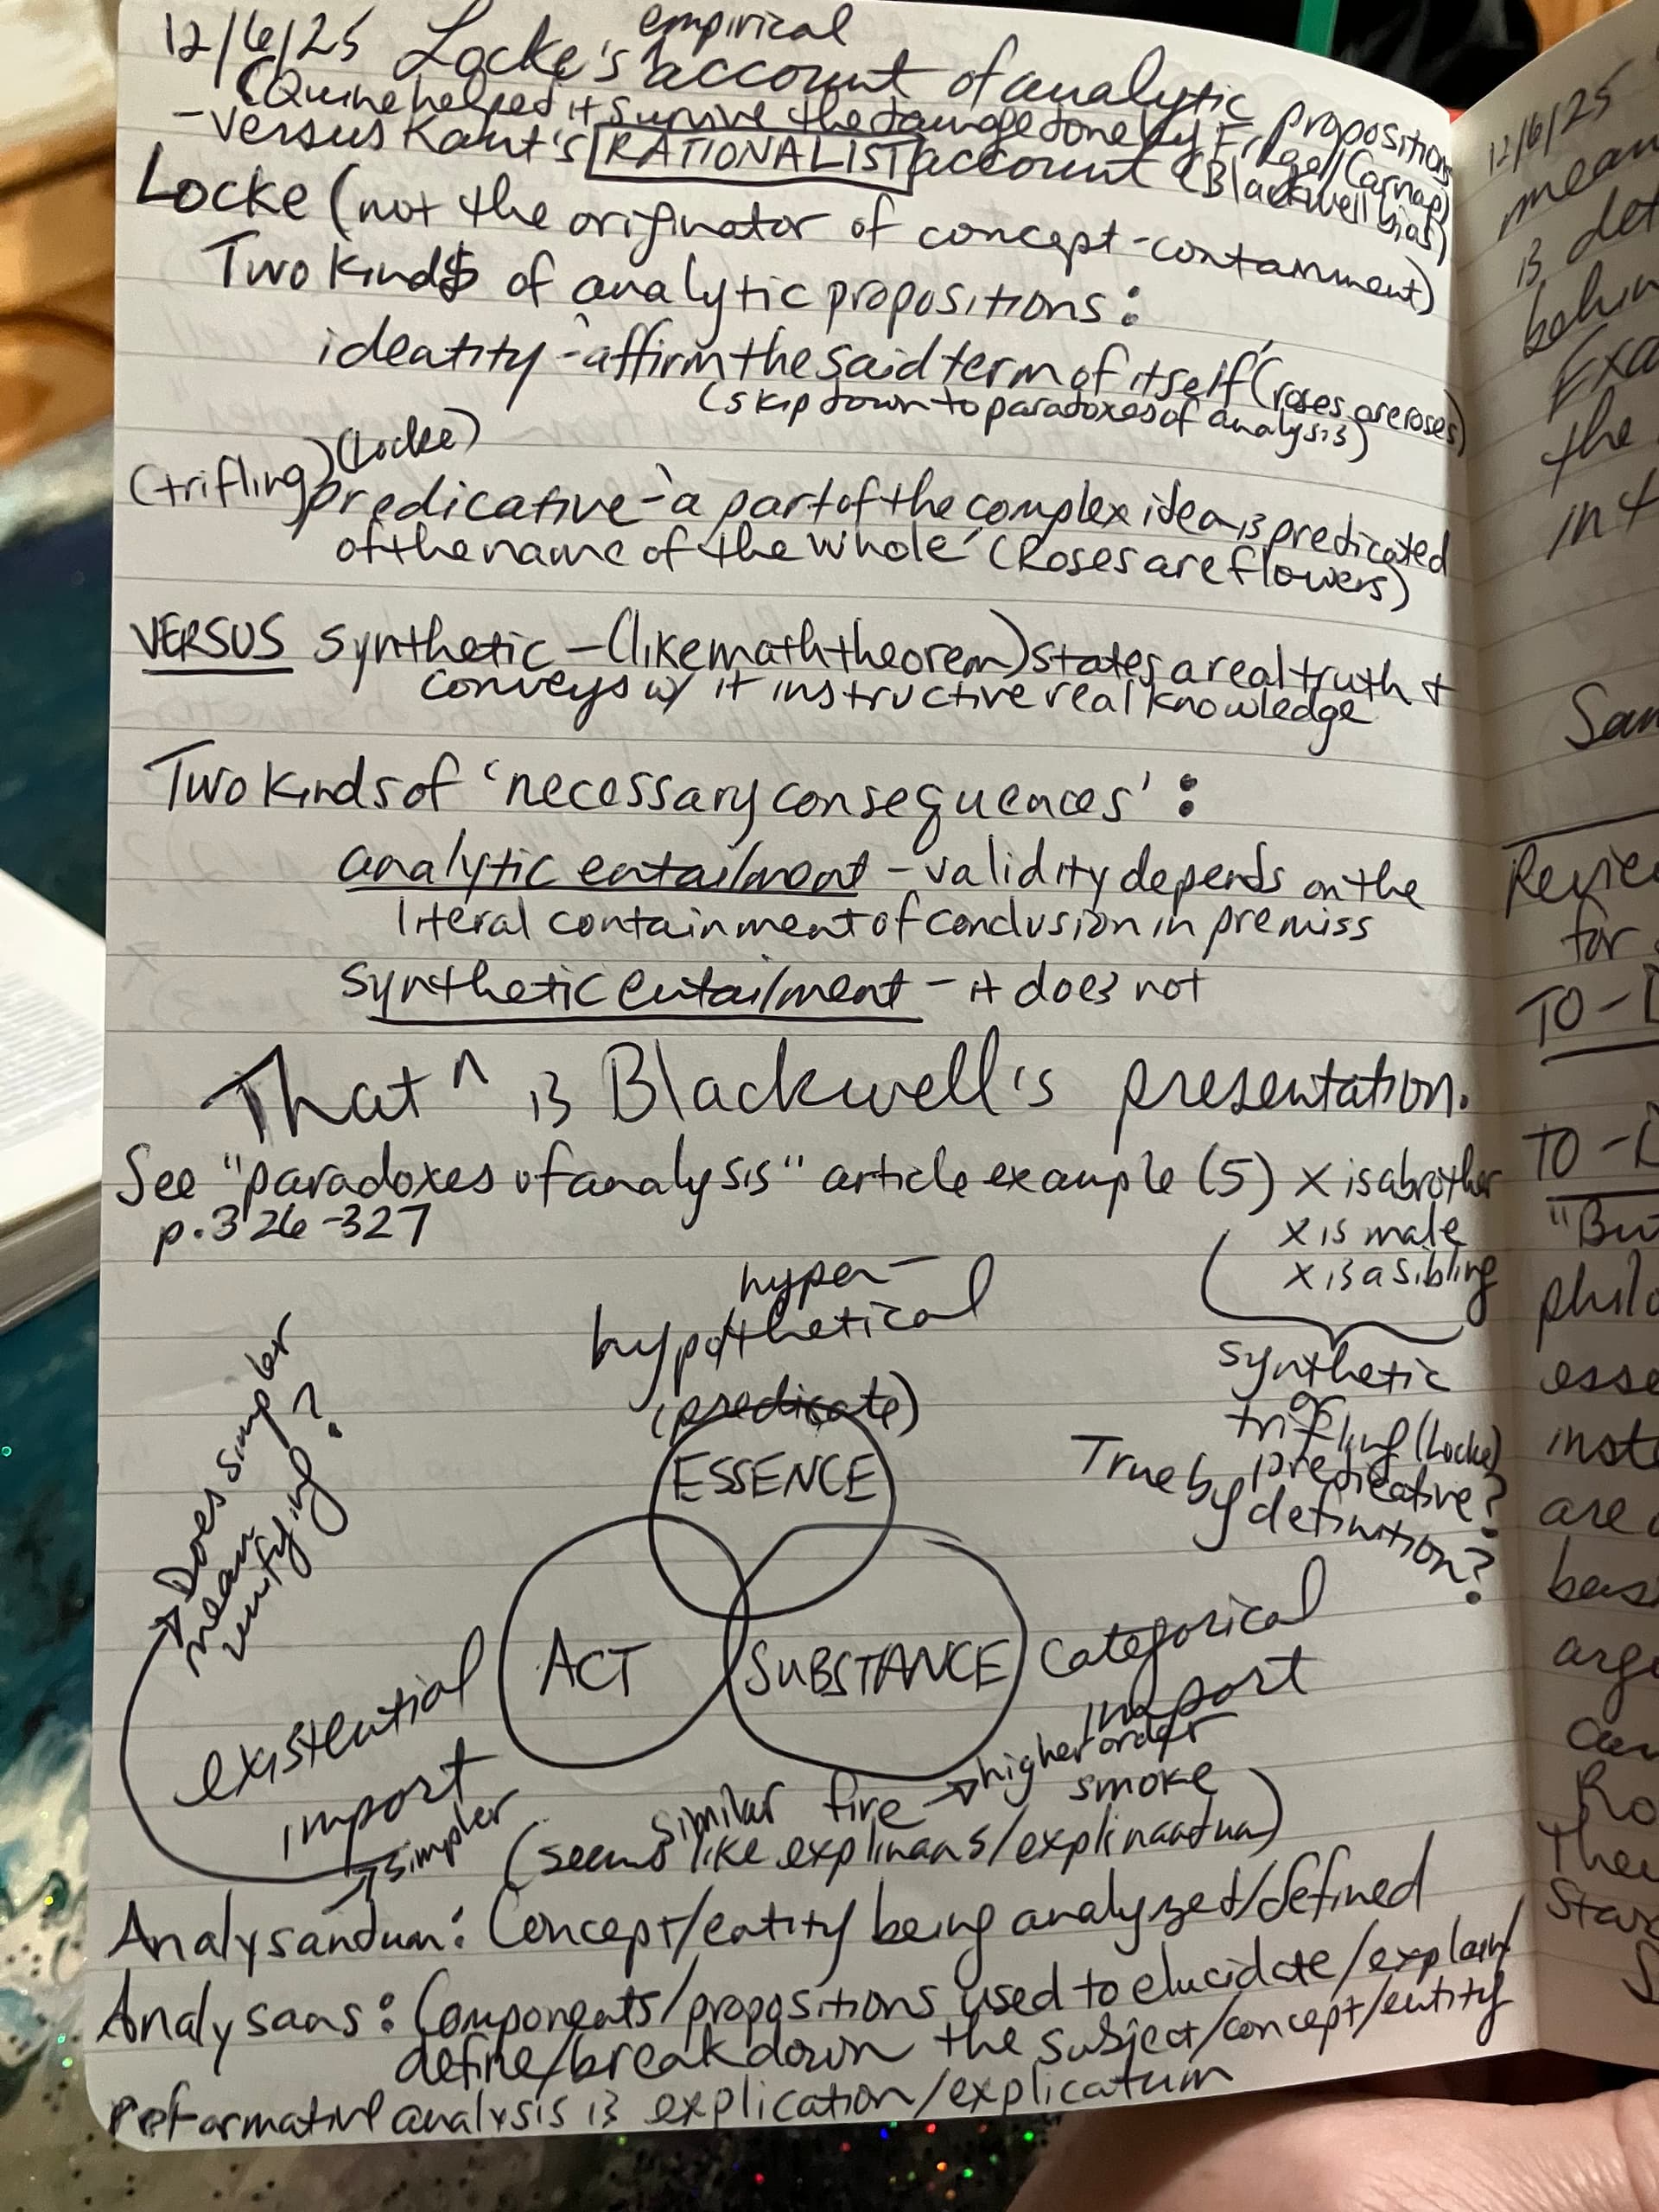 empirical
12/6/25 Locke's account of analytic propositions
(Quine helped it survive the damage done by Frege/Carnap)
- versus Kant's RATIONALIST account (Blackwell bias)
Locke (not the originator of concept-containment)
Two kinds of analytic propositions:
identity - 'affirm the said term of itself' (roses are roses)
(skip down to paradoxes of analysis)
(trifling) (Locke)
predicative - 'a part of the complex idea is predicated
of the name of the whole' (Roses are flowers)
VERSUS synthetic - (like math theorem) states a real truth +
conveys w/ it instructive real knowledge
Two kinds of 'necessary consequences':
analytic entailment - validity depends on the
literal containment of conclusion in premiss
synthetic entailment - it does not
That ^ is Blackwell's presentation.
See "paradoxes of analysis" article example (5) x is a brother
p. 326-327
x is male
x is a sibling
synthetic
or
trifling (Locke)
predicative?
True by definition?
hyper-
hypothetical
(predicate)
ESSENCE
Does simpler
mean
unifying?
ACT
SUBSTANCE
existential
import
Categorical
import
similar fire → higher order
smoke
simpler
(seems like explinans/explinandum)
Analysandum: Concept/entity being analyzed/defined
Analysans: Components/propositions used to elucidate/explain/
define/breakdown the subject/concept/entity
reformative analysis is explication/explicatum
12/6/25
mean
is det
behin
Exa
the
in t
San
Revie
for
TO-D
TO-D
"Bu
philo
esse
inst
are
bas
arg
can
Ro
The
Star
S